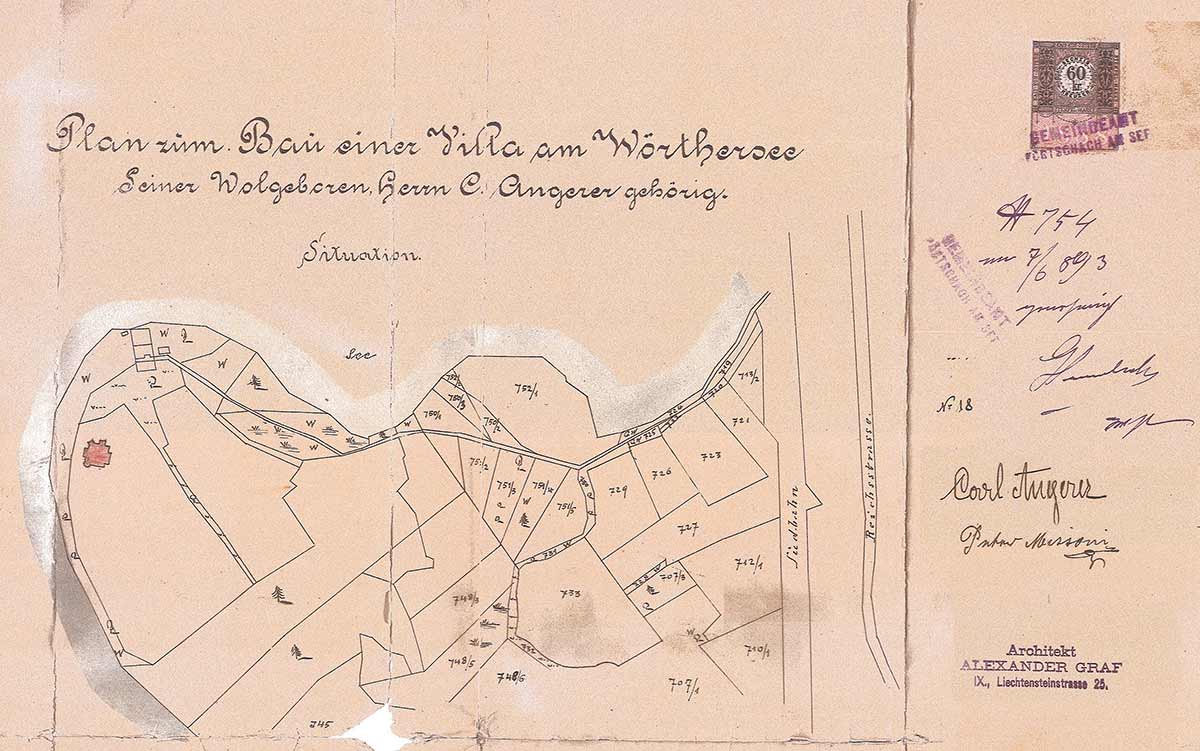 Plan zum. Bau einer Villa am Wörthersee
Seiner Wolgeboren, Herrn C. Angerer gehörig.
Situation.
See
W
W
W
W
W
W
752/1
750/1
750/2
713/2
721
723
726
729
727
725
751/2
751/3
751/4
751/5
731 W
733
707/3
712/1
710/1
707/1
748/3
748/5
748/6
732
745
Südbahn
Reichsstrasse.
60
kr
GEMEINDEAMT
PÖRTSCHACH AM SEE
754
7/6 893
GEMEINDEAMT
PÖRTSCHACH AM SEE
No 18
Carl Angerer
Peter Missoni
Architekt
ALEXANDER GRAF
IX., Liechtensteinstrasse 25.